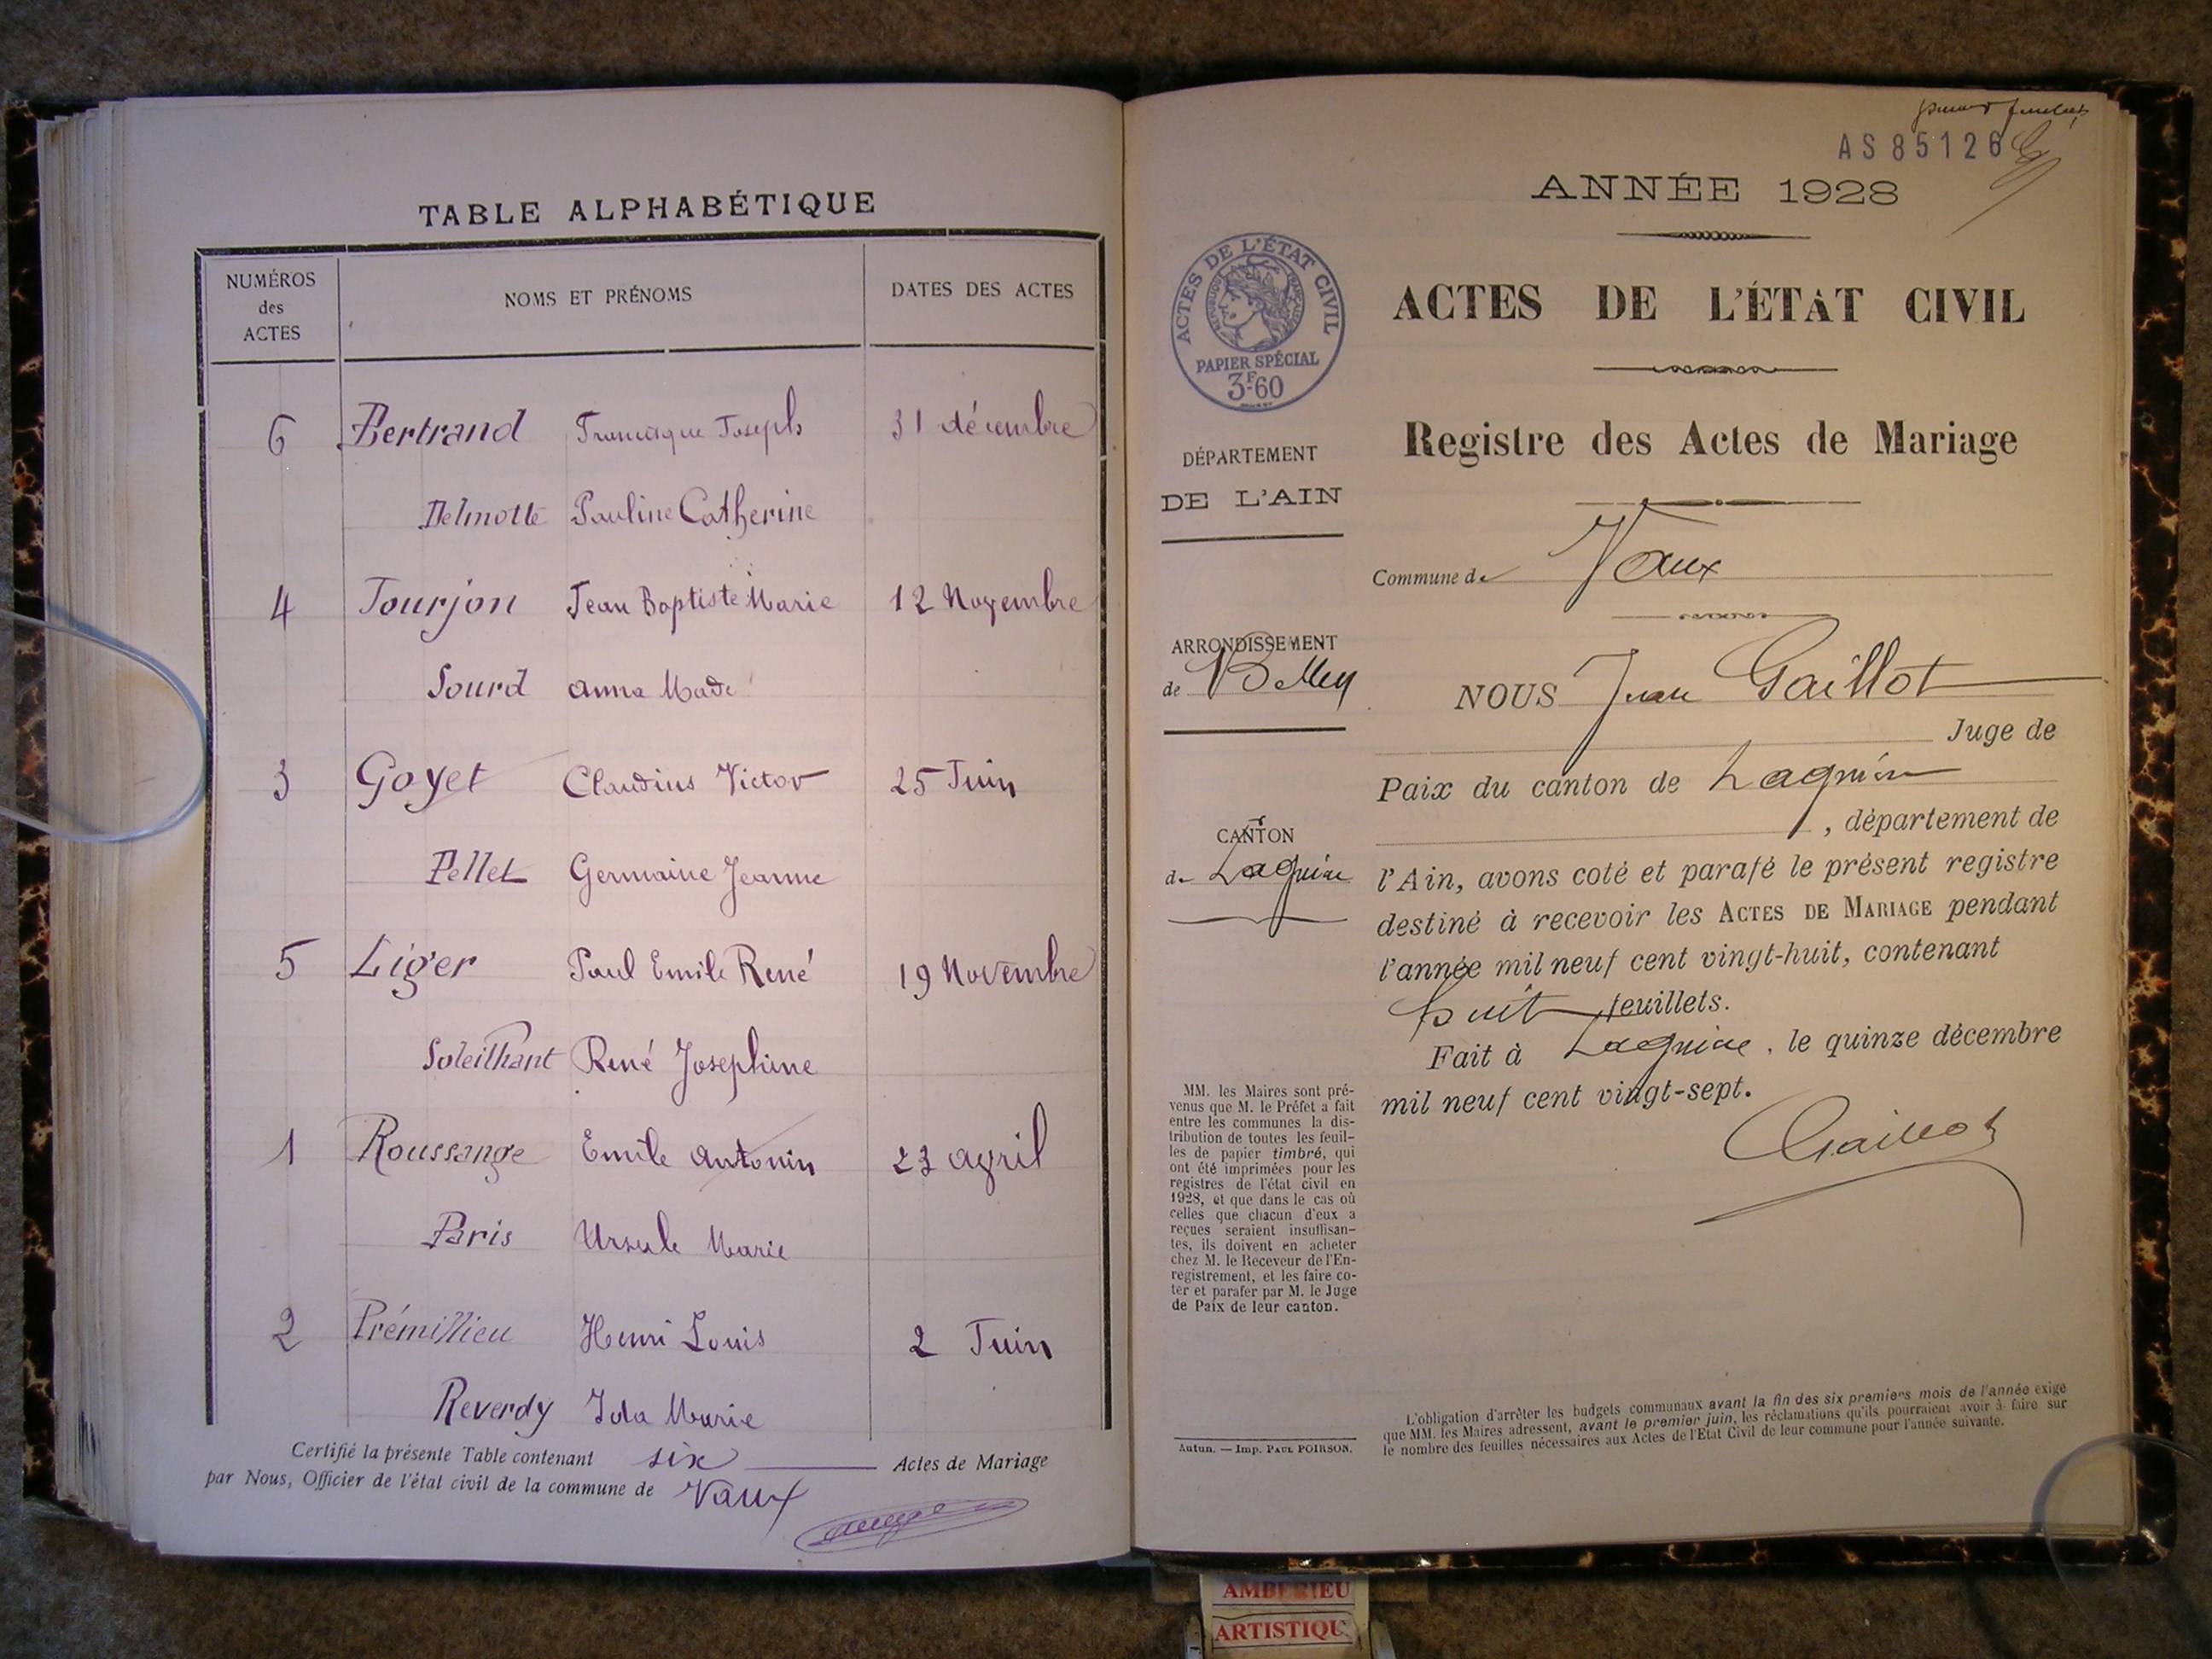 TABLE ALPHABÉTIQUE
NUMÉROS
des
ACTES
NOMS ET PRÉNOMS
DATES DES ACTES
6 Bertrand Francisque Joseph 31 décembre
Delmotte Pauline Catherine
4 Tourjon Jean Baptiste Marie 12 Novembre
Sourd Anna
3 Goyet Claudius Victor 25 Juin
Pellet Germaine Jeanne
5 Liger Paul Emile René 19 Novembre
Soleilhant René Josephine
1 Roussange Emile Antonin 23 avril
Paris Ursule Marie
2 Prémillieu Henri Louis 2 Juin
Reverdy Ida Marie
Certifié la présente Table contenant six Actes de Mariage
par Nous, Officier de l'état civil de la commune de Vaux
AS 85126
ANNÉE 1928
ACTES DE L'ÉTAT CIVIL
RÉPUBLIQUE FRANÇAISE
PAPIER SPÉCIAL
3F.60
ACTES DE L'ÉTAT CIVIL
Registre des Actes de Mariage
DÉPARTEMENT
DE L'AIN
Commune de Vaux
ARRONDISSEMENT
de Belley
CANTON
de Lagnieu
NOUS Jean Gaillot
Juge de
Paix du canton de Lagnieu
, département de
l'Ain, avons coté et parafé le présent registre
destiné à recevoir les ACTES DE MARIAGE pendant
l'année mil neuf cent vingt-huit, contenant
huit feuillets.
Fait à Lagnieu, le quinze décembre
mil neuf cent vingt-sept.
Gaillot
MM. les Maires sont pré-
venus que M. le Préfet a fait
entre les communes la dis-
tribution de toutes les feuil-
les de papier timbré, qui
ont été imprimées pour les
registres de l'état civil en
1928, et que dans le cas où
celles que chacun d'eux a
reçues seraient insuffisan-
tes, ils doivent en acheter
chez M. le Receveur de l'En-
registrement, et les faire co-
ter et parafer par M. le Juge
de Paix de leur canton.
Autun. — Imp. PAUL POIRSON.
L'obligation d'arrêter les budgets communaux avant la fin des six premiers mois de l'année exige
que MM. les Maires adressent, avant le premier juin, les réclamations qu'ils pourraient avoir à faire sur
le nombre des feuilles nécessaires aux Actes de l'Etat Civil de leur commune pour l'année suivante.
AMBERIEU
ARTISTIQU